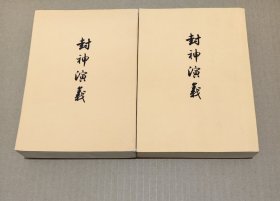 封神演義
封神演義